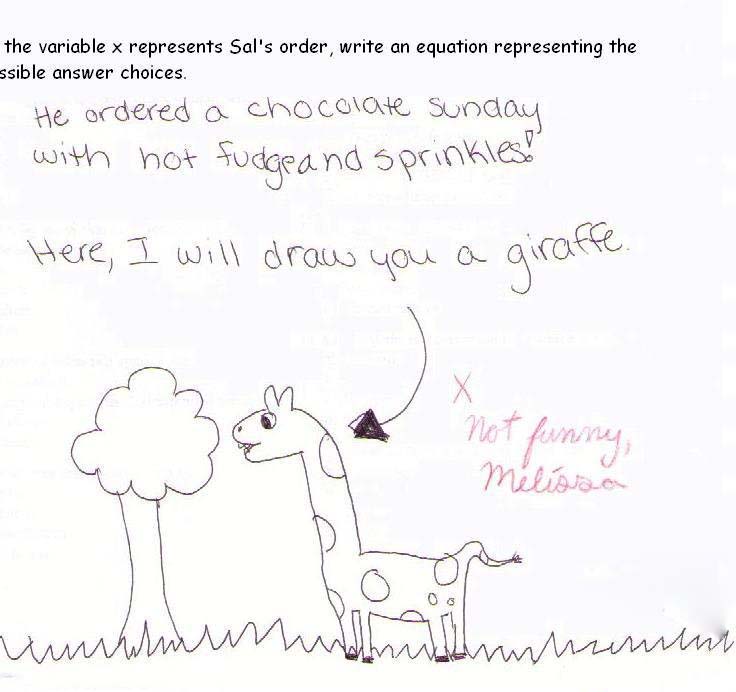 the variable x represents Sal's order, write an equation representing the
ssible answer choices.
He ordered a chocolate sunday
with hot fudge and sprinkles!
Here, I will draw you a giraffe.
X
Not funny,
Melissa